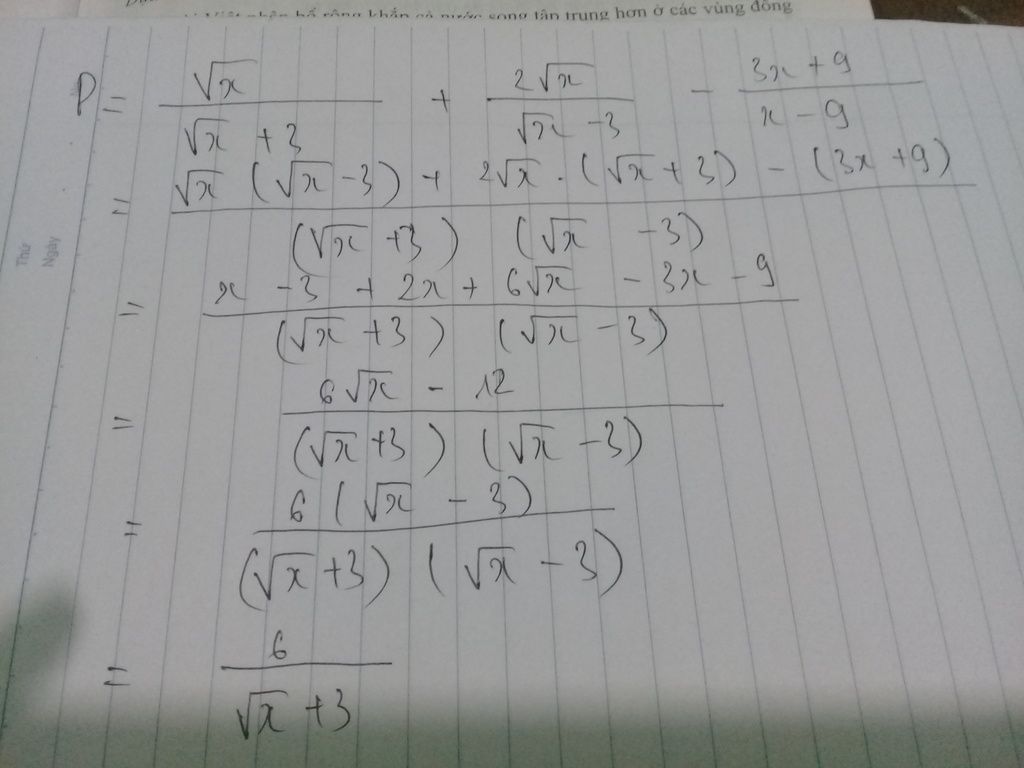 Việt phân bố rộng khắp cả nước song tập trung hơn ở các vùng đồng
P = √x / (√x + 3) + 2√x / (√x - 3) - (3x + 9) / (x - 9)
= (√x (√x - 3) + 2√x . (√x + 3) - (3x + 9)) / ((√x + 3) (√x - 3))
= (x - 3 + 2x + 6√x - 3x - 9) / ((√x + 3) (√x - 3))
= (6√x - 12) / ((√x + 3) (√x - 3))
= 6 (√x - 3) / ((√x + 3) (√x - 3))
= 6 / (√x + 3)
Thứ
Ngày